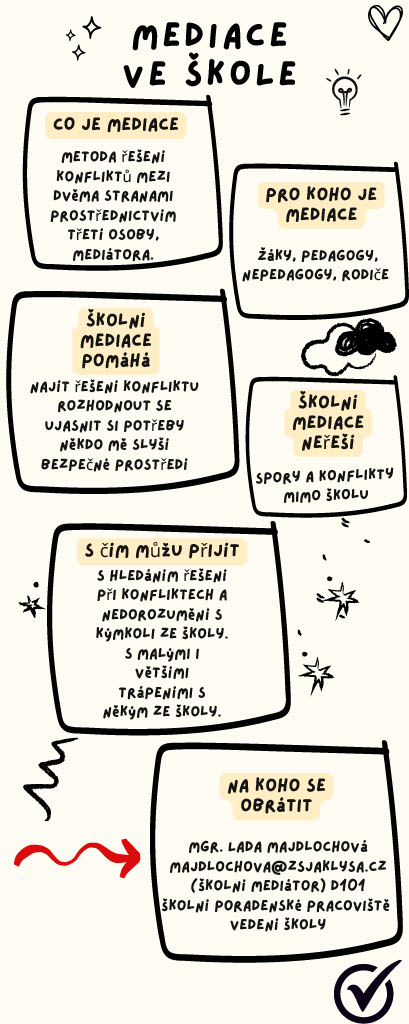 MEDIACE
VE ŠKOLE
CO JE MEDIACE
METODA ŘEŠENÍ
KONFLIKTŮ MEZI
DVĚMA STRANAMI
PROSTŘEDNICTVÍM
TŘETÍ OSOBY,
MEDIÁTORA.
PRO KOHO JE
MEDIACE
ŽÁKY, PEDAGOGY,
NEPEDAGOGY, RODIČE
ŠKOLNÍ
MEDIACE
POMÁHÁ
NAJÍT ŘEŠENÍ KONFLIKTU
ROZHODNOUT SE
UJASNIT SI POTŘEBY
NĚKDO MĚ SLYŠÍ
BEZPEČNÉ PROSTŘEDÍ
ŠKOLNÍ
MEDIACE
NEŘEŠÍ
SPORY A KONFLIKTY
MIMO ŠKOLU
S ČÍM MŮŽU PŘIJÍT
S HLEDÁNÍM ŘEŠENÍ
PŘI KONFLIKTECH A
NEDOROZUMĚNÍ S
KÝMKOLI ZE ŠKOLY.
S MALÝMI I
VĚTŠÍMI
TRÁPENÍMI S
NĚKÝM ZE ŠKOLY.
NA KOHO SE
OBRÁTIT
MGR. LADA MAJDLOCHOVÁ
MAJDLOCHOVA@ZSJAKLYSA.CZ
(ŠKOLNÍ MEDIÁTOR) D101
ŠKOLNÍ PORADENSKÉ PRACOVIŠTĚ
VEDENÍ ŠKOLY